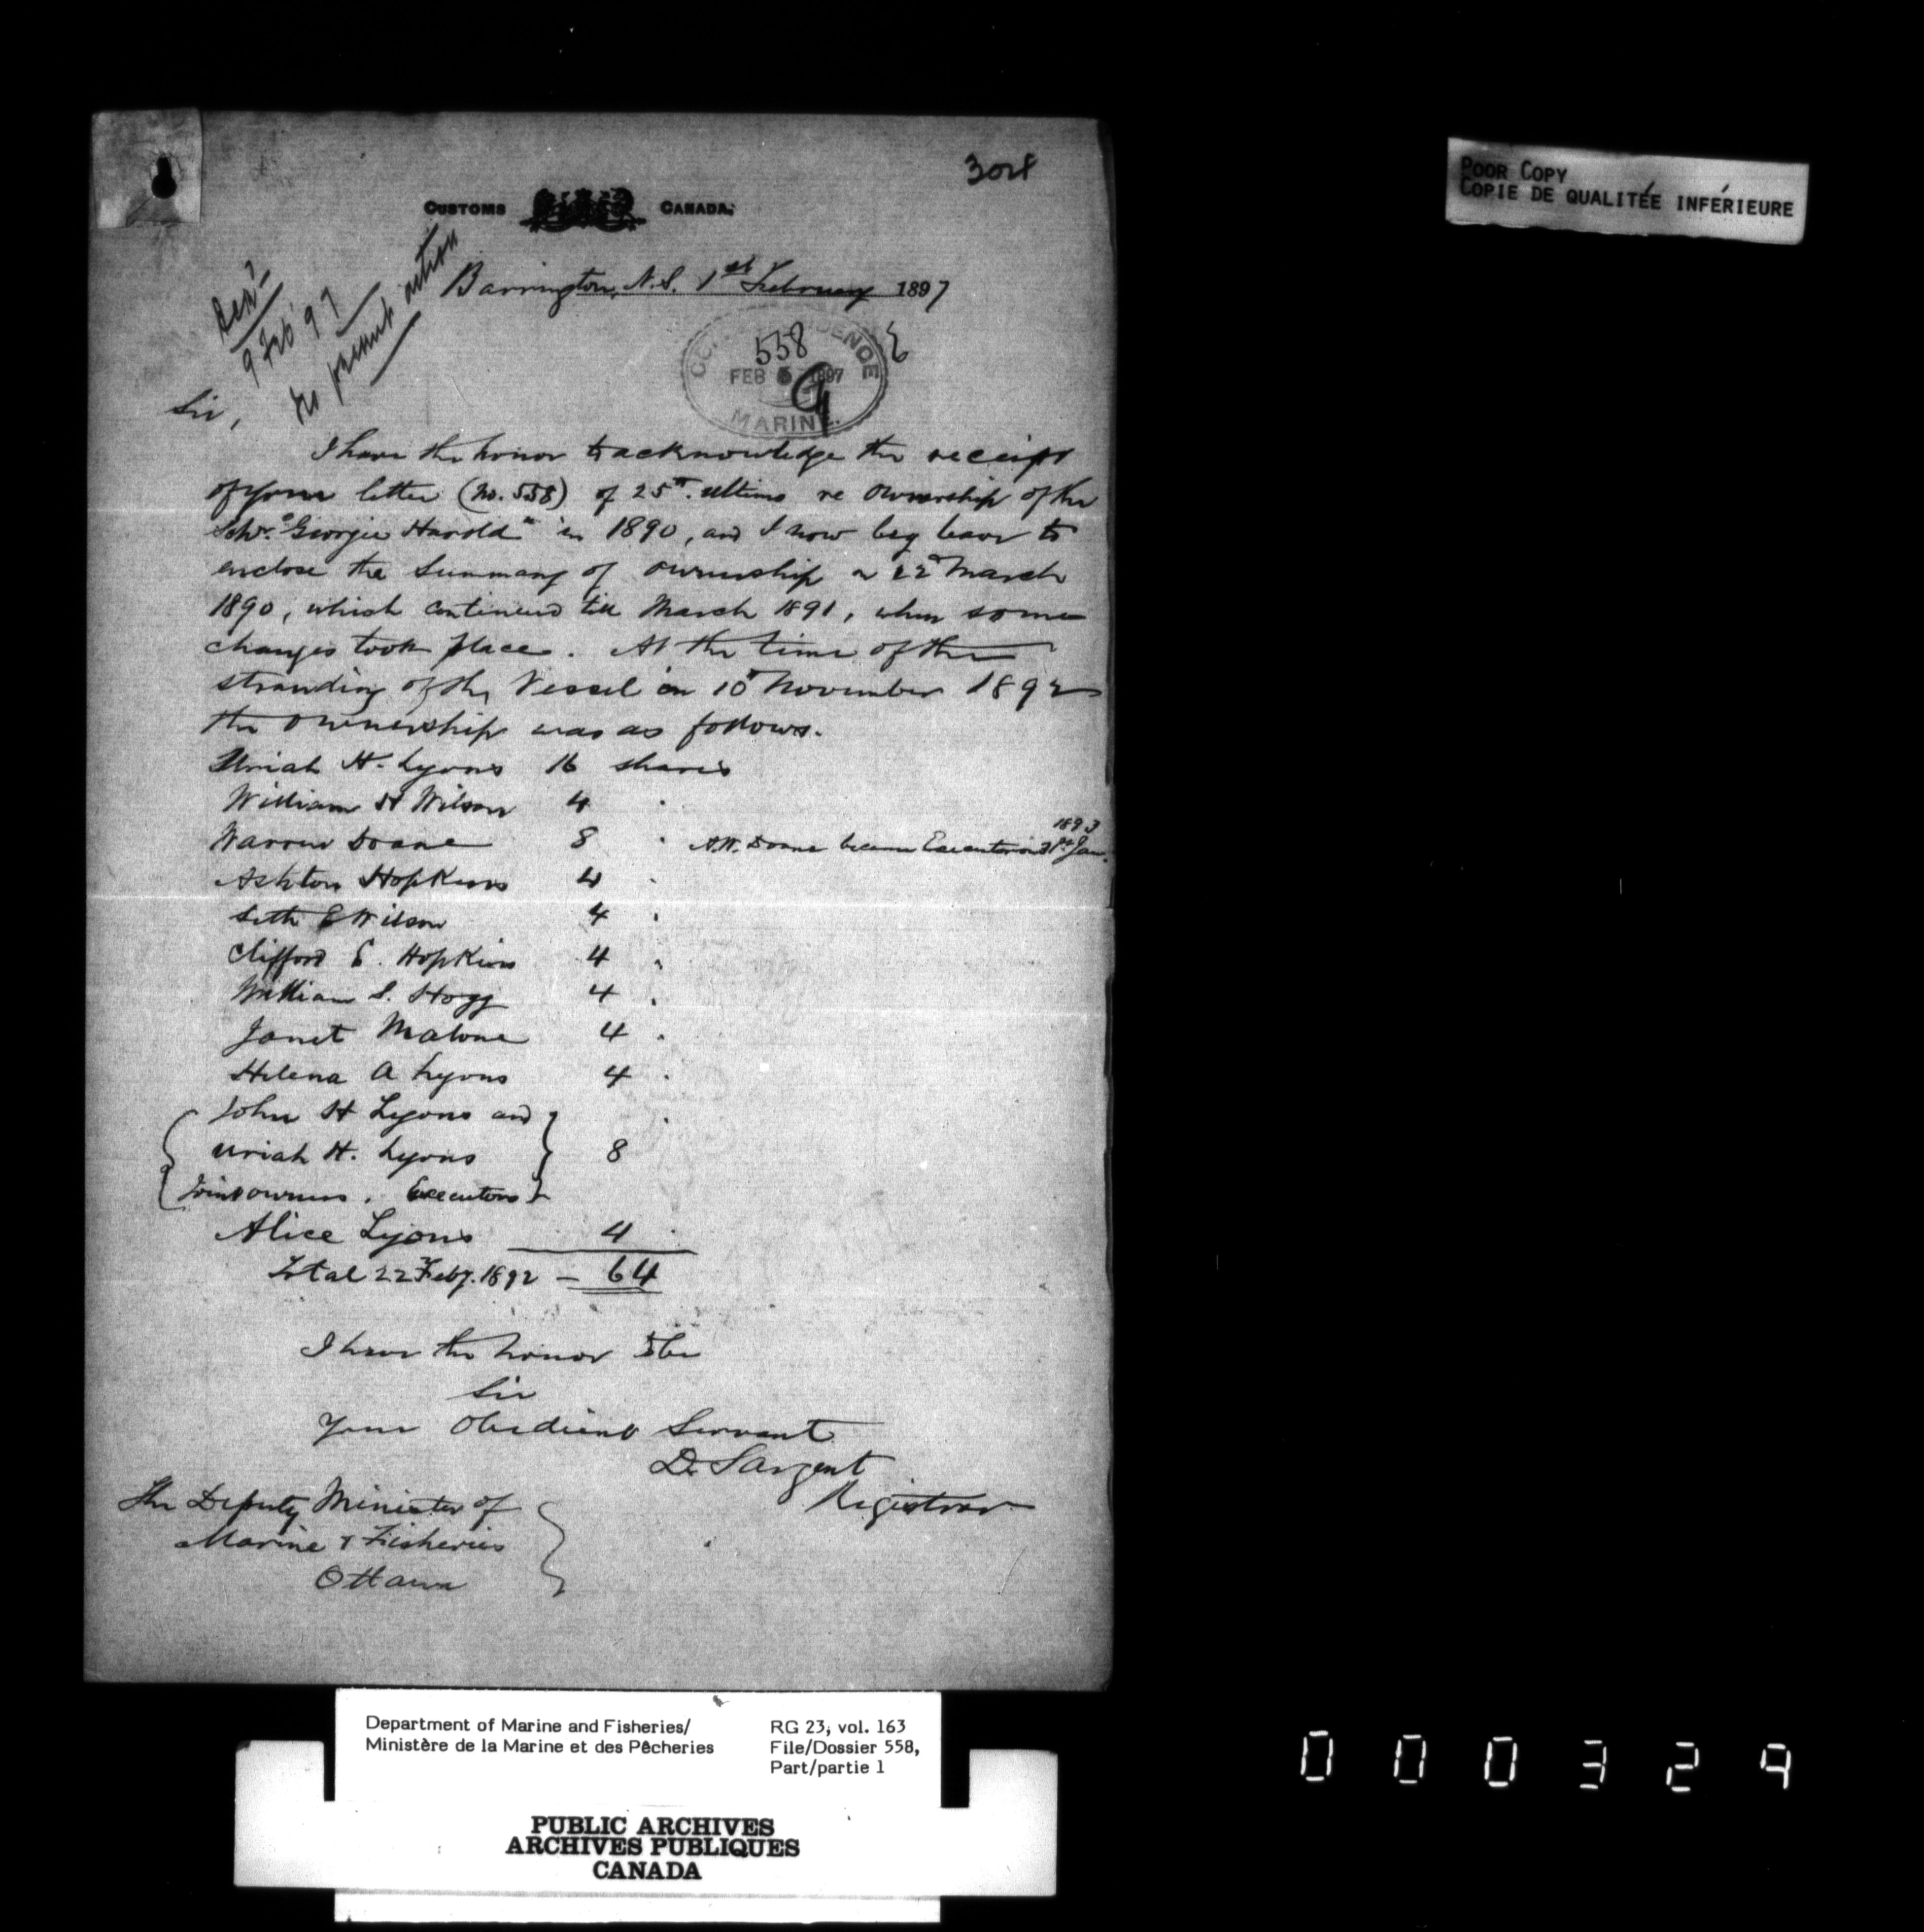 POOR COPY
COPIE DE QUALITÉE INFÉRIEURE
CUSTOMS CANADA.
Barrington, N.S. 1st February 1897
9 Feb 97
No present action
558
FEB 5 1897
MARINE
Sir,
I have the honor to acknowledge the receipt
of your letter (No. 558) of 25th. ultimo re ownership of the
Schr. "Georgie Harold" in 1890, and I now beg leave to
enclose the Summary of ownership on 22d March
1890, which continued till March 1891, when some
changes took place. At the time of the
stranding of the Vessel on 10th November 1892
the ownership was as follows.
Uriah H. Lyons 16 shares
William H Wilson 4 "
Warren Doane 8 " A.W. Doane became Executor 31st Jan. 1893
Ashton Hopkins 4 "
Seth E Wilson 4 "
Clifford E. Hopkins 4 "
William S. Hogg 4 "
Janet Malone 4 "
Helena A Lyons 4 "
John H Lyons and
Uriah H. Lyons 8
Joint owners. Executors
Alice Lyons 4 "
Total 22d Feby. 1892 — 64
I have the honor to be
Sir
Your Obedient Servant
D. Sargent
Registrar
The Deputy Minister of
Marine & Fisheries
Ottawa
Department of Marine and Fisheries/
Ministère de la Marine et des Pêcheries
RG 23, vol. 163
File/Dossier 558,
Part/partie 1
PUBLIC ARCHIVES
ARCHIVES PUBLIQUES
CANADA
000329